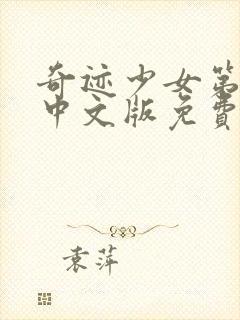 奇迹少女第
中文版免費
袁萍